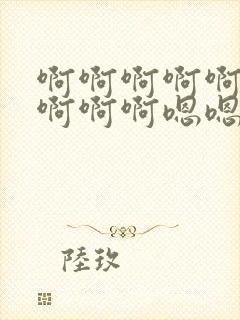 啊啊啊啊啊
啊啊啊嗯嗯
陸玖